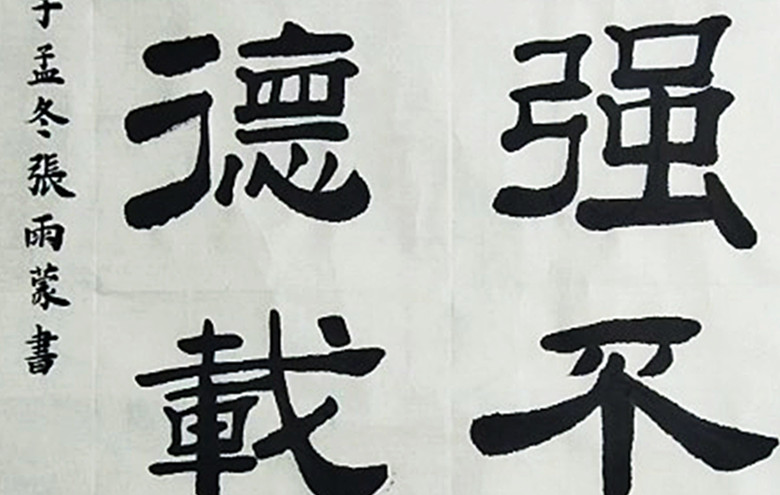 强不
德載
子孟冬張雨蒙書